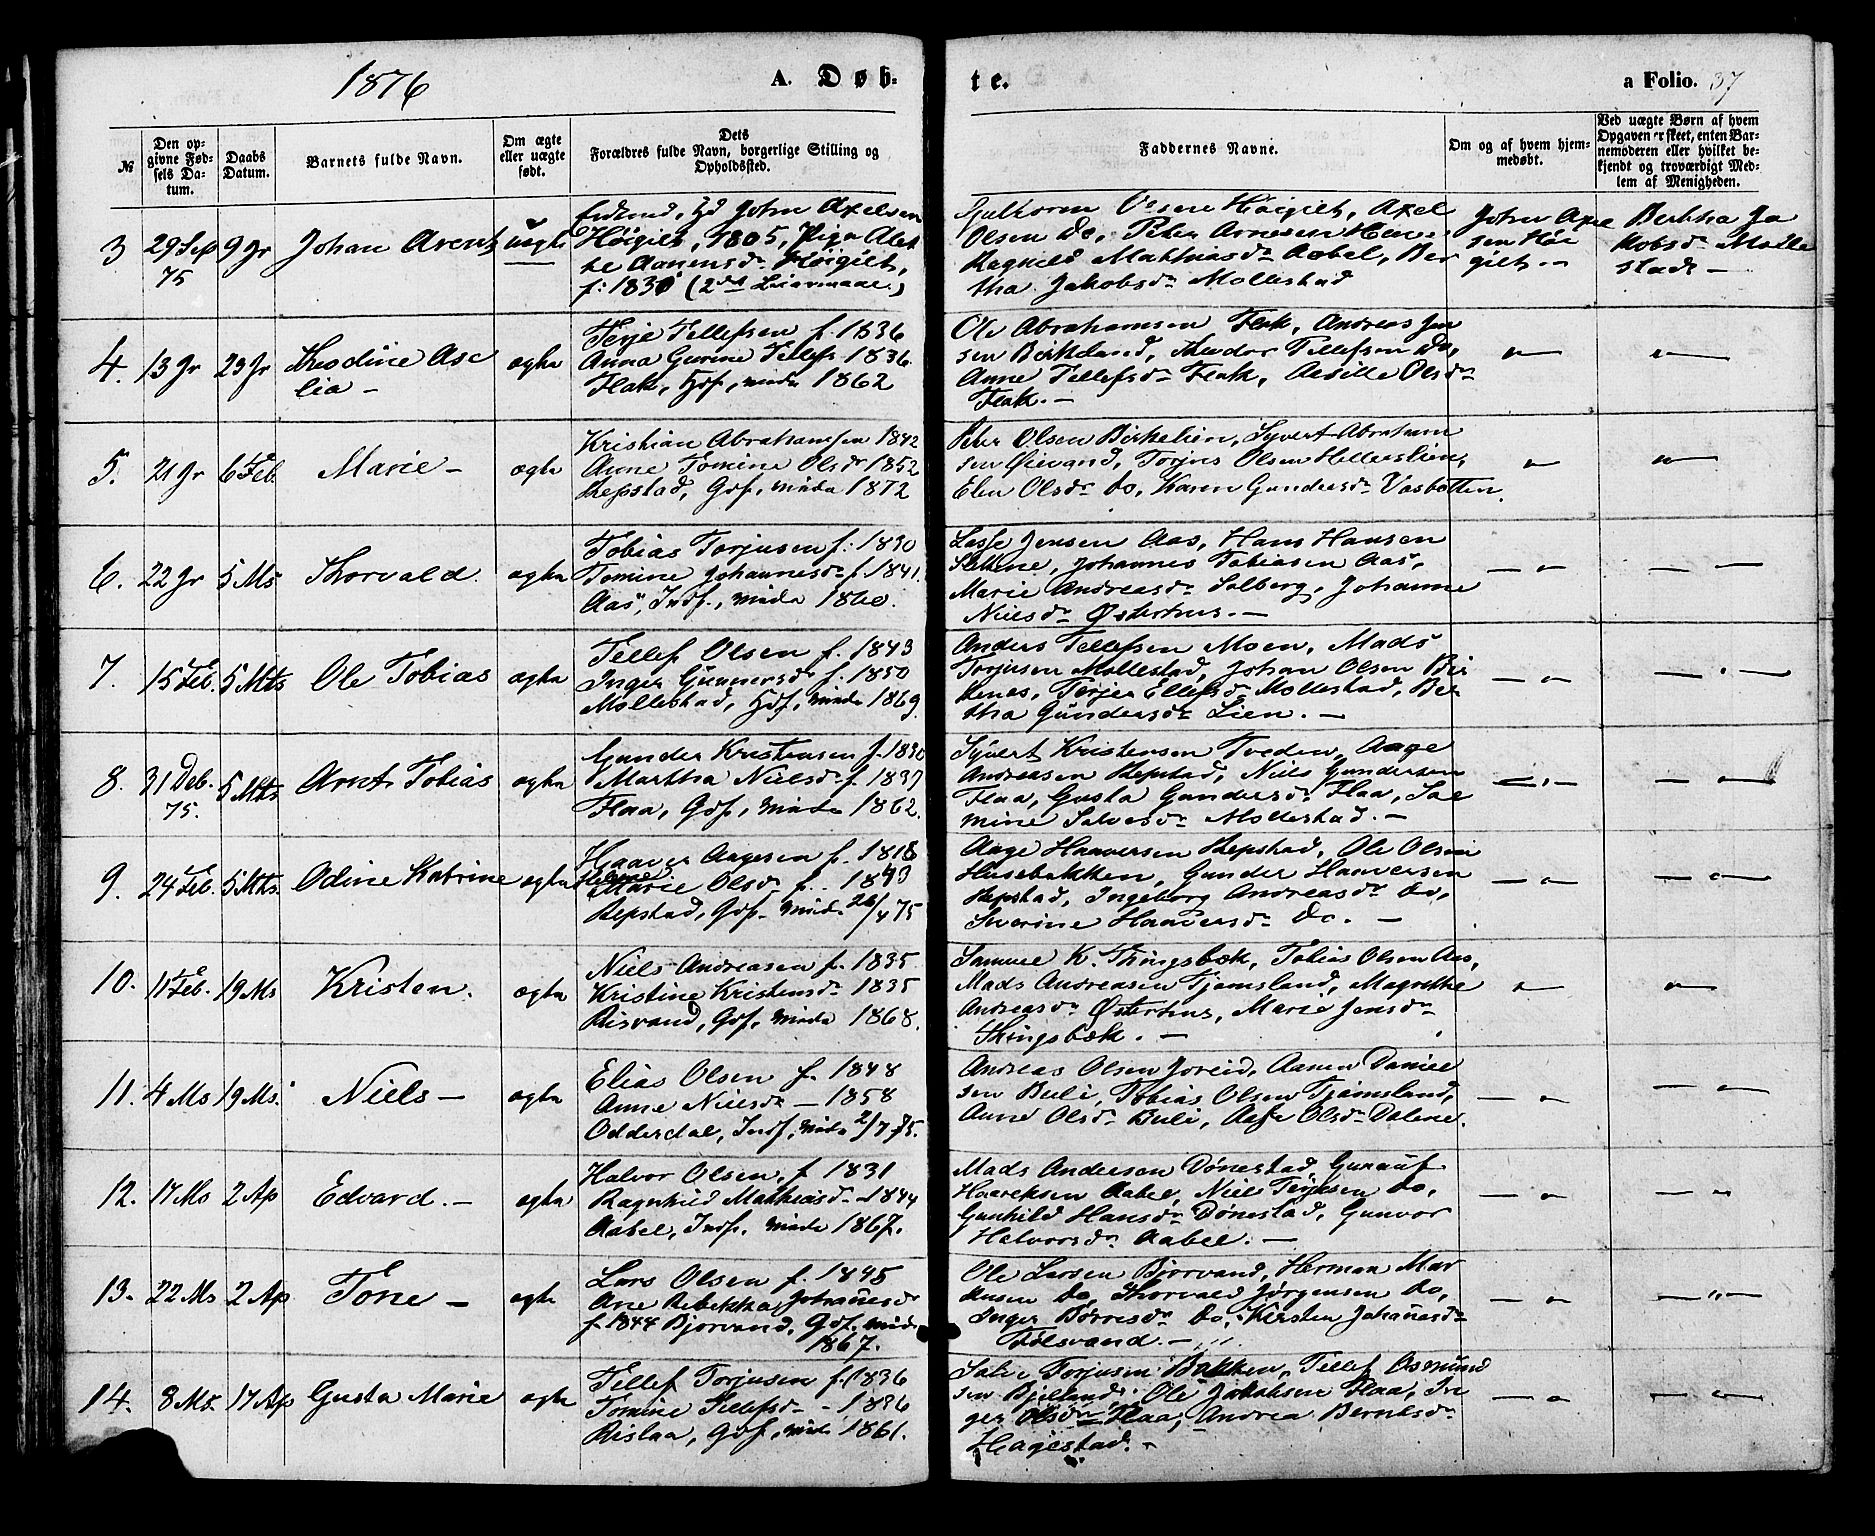 1876
A. Døb-
te.
a Folio. 37
№
Den op-
givne Fød-
sels Da-
tum.
Daabs
Datum.
Barnets fulde Navn.
Om ægte
eller uægte
født.
Dets
Forældres fulde Navn, borgerlige Stilling og
Opholdssted.
Faddernes Navne.
Om og af hvem hjem-
medøbt.
Ved uægte Børn af hvem
Opgaven er skeet, enten Bar-
nemoderen eller hvilket be-
kjendt og troværdigt Med-
lem af Menigheden.
3
29 Sep
75
9 Jr
Johan Arent
uægte
John Axelsen
Høigilt, 1805, Pige
Høigilt,
f: 1830 (2den Leiermaal.)
Høigilt, Axel
Olsen Do, Peter Arnesen
Ragnild Mathiasdr Aabel, Ber
tha Jakobsdr Mollestad
John Axel
sen Høi
gilt. -
Bertha Ja
kobsdr Molle
stad -
4.
13 Jr
23 Jr
Theodine Ase
lia -
ægte
Terje Tellefsen f. 1836
Anna Gurine Tellefs 1836.
Flak, Hdf, vinda 1862
Ole Abrahamsen Flak, Andreas Jen
sen Birkeland, Theodor Tellefsen Do,
Anne Tellefsdr Flak, Olsdr
Flak. -
5.
21 Jr
6 Feb.
Marie -
ægte
Kristian Abrahamsen 1842
Anne Tomine Olsdr 1852
Repstad, Gdf, vinda 1872
Peter Olsen Birkelien, Syvert Abraham
sen Øievand, Torjus Olsen Hellerslien,
Elen Olsdr do, Karen Gundersdr Vasbotten.
6.
22 Jr
5 Ms
Thorvald.
ægte
Tobias Torjusen f: 1830
Tomine Johannesdr f. 1841.
Aas, Indf., vinda 1860.
Lasse Jensen Aas, Hans Hansen
Johannes Tobiasen Aas,
Marie Andreasdr Solberg, Johanne
Nielsdr Østerhus. -
7.
15 Feb.
5 Mts
Ole Tobias
ægte
Tellef Olsen f. 1843
Inger Gunnersdr f. 1850
Mollestad, Hdf, vinda 1869.
Anders Tellefsen Moen, Mads
Torjusen Mollestad, Johan Olsen Bir
kenes, Terjer Ellefsdr Mollestad, Ber
tha Gundersdr Lien. -
8.
31 Deb.
75.
5 Mts
Arnt Tobias
ægte
Gunder Kristensen f. 1830
Martha Nielsdr f. 1837
Flaa, Gdf, vinda 1862.
Syvert Kristensen Tveden, Aage
Andreasen Repstad, Niels Gundersen
Flaa, Gusta Gundersdr Flaa, Sae
mine Salvesdr Mollestad. -
9.
24 Feb.
5 Mts.
Odine Katrine
ægte
Haaver Aagesen f. 1818
Marie Olsdr f. 1843
Repstad, Gdf. vinda 26/4 75
Aage Haaversen Repstad, Ole Olsen
Husebakken, Gunder Haaversen
Repstad, Ingeborg Andreasdr Do,
Severine Haaversdr Do. -
10.
11 Feb.
19 Ms
Kristen.
ægte
Niels Andreasen f. 1835
Kristine Kristensdr 1835
Risvand, Gdf, vinda 1868.
Samuel K. Thingsbæk, Tobias Olsen Aas,
Mads Andreasen Tjomsland, Magrethe
Andreasdr Østerhus, Marie Jensdr
Thingsbæk. -
11.
4 Ms
19 Ms.
Niels -
ægte
Elias Olsen f. 1848
Anne Nielsdr - 1858
Oddersdal, Indf, vinda 2/7 75.
Andreas Olsen Joreid, Aanen Daniel
sen Buli, Tobias Olsen Tjomsland,
Anne Olsdr Buli, Aase Olsdr Dalene.
12.
17 Ms
2 Ap
Edvard. -
ægte
Halvor Olsen, f 1831
Ragnhild Mathiasdr - 1844
Aabel, Indf. vinda 1867.
Mads Andersen Dønestad, Gunauf
Haareksen Aabel, Niels Terjesen Do,
Gunhild Hansdr Dønestad, Gunvor
Halvorsdr Aabel. -
13.
22 Ms
2 Ap
Tone -
ægte
Lars Olsen f. 1845
Ane Rebekka Johannesdr
f. 1844 Bjorvand, Gdf. vinda
1867.
Ole Larsen Bjorvand, Herman Mar
kusen do, Thorvald Jørgensen Do,
Inger Børresdr Do, Kirsten Johannesdr
Følsvand. -
14.
8 Ms.
17 Ap
Gusta Marie
ægte
Tellef Torjusen f. 1836
Tomine Tellefsdr - 1836
Rislaa, Gdf, vinda 1861.
Salve Torjusen Bakken, Tellef Osmund
sen Bjelland, Ole Jakobsen Flaa, In
ger Olsdr Flaa, Andrea Berntsdr
Hagestad. -